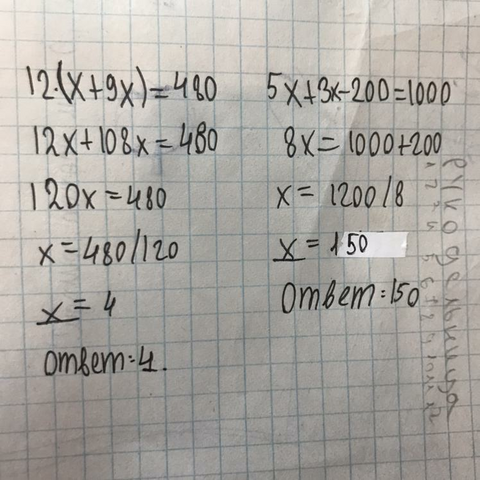 12·(x+9x)=480
12x+108x=480
120x=480
x=480/120
x=4
Ответ:4.
5x+3x-200=1000
8x=1000+200
x=1200/8
x=150
Ответ:150
рукодельница